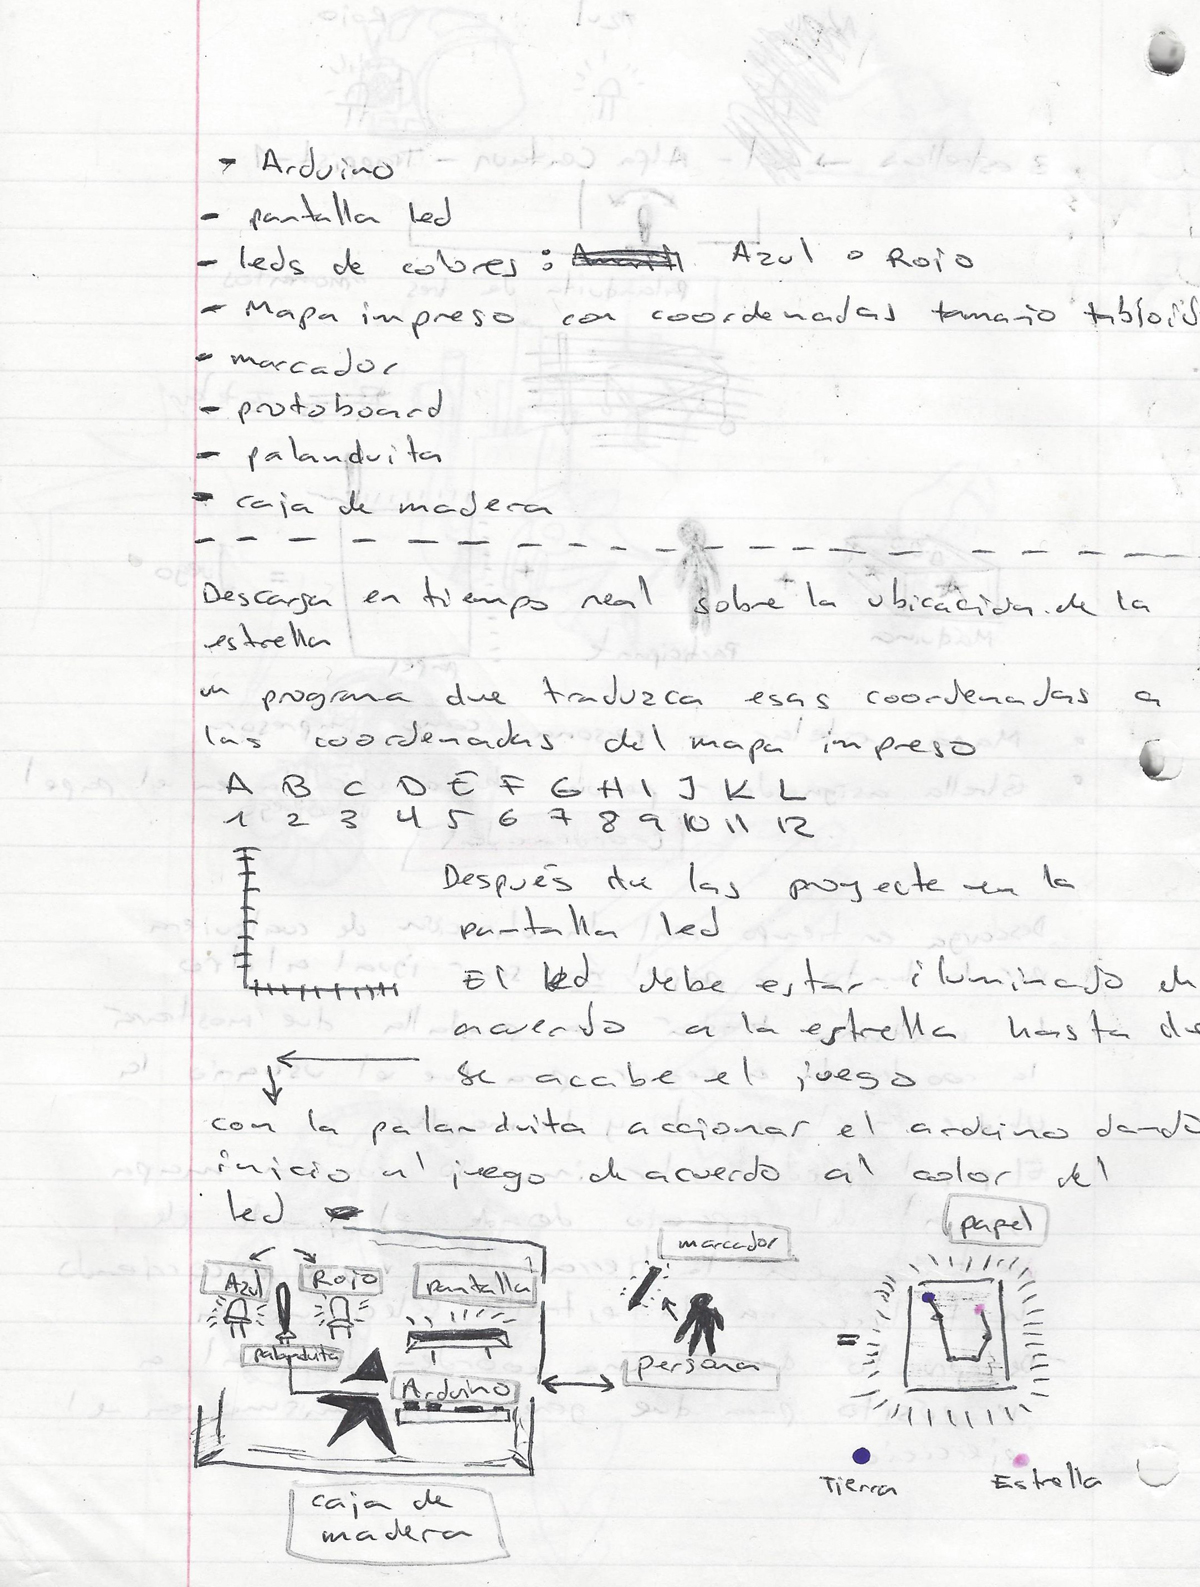 - Arduino
- pantalla led
- leds de colores : Azul o Rojo
- Mapa impreso con coordenadas tamaño tabloid
- marcador
- protoboard
- palanquita
- caja de madera
Descarga en tiempo real sobre la ubicación de la
estrella
un programa que traduzca esas coordenadas a
las coordenadas del mapa impreso
A B C D E F G H I J K L
1 2 3 4 5 6 7 8 9 10 11 12
Después que las proyecte en la
pantalla led
El led debe estar iluminado de
acuerdo a la estrella hasta que
se acabe el juego
con la palanquita accionar el arduino dando
inicio al juego de acuerdo al color del
led
papel
marcador
Azul Rojo pantalla
palanquita
persona
Arduino
=
Tierra Estrella
caja de
madera